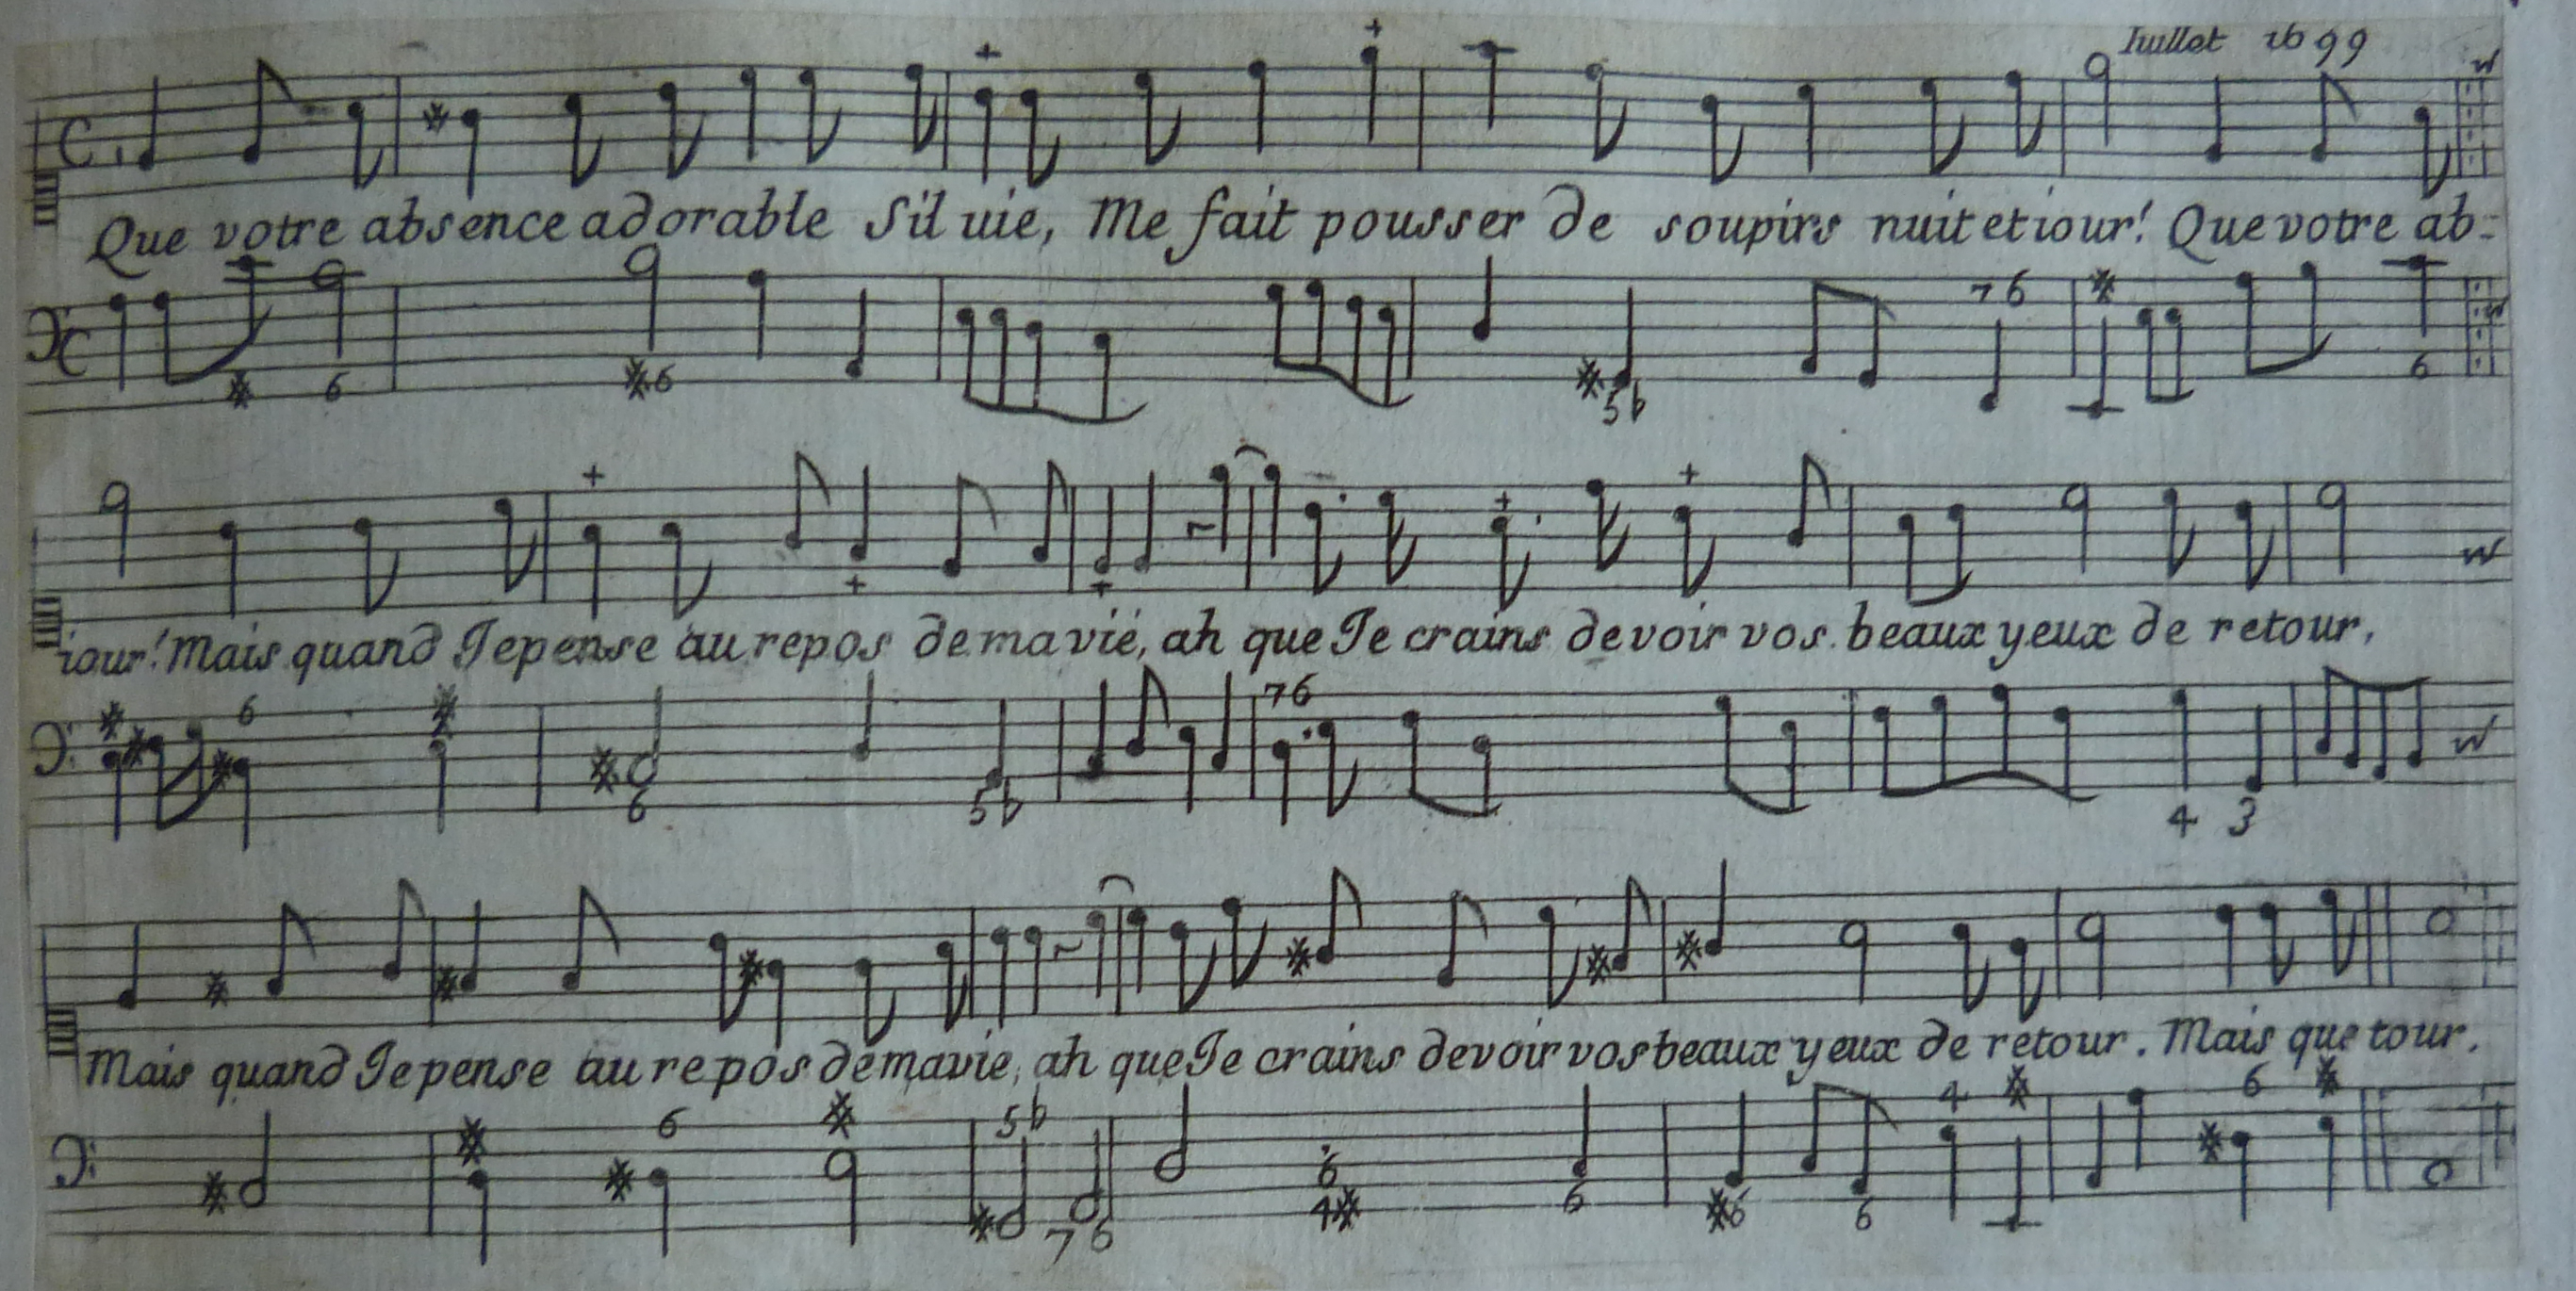 Juillet 1699
Que votre absence adorable Siluie, Me fait pousser de soupirs nuit et iour! Que votre ab-
* 6 *6 5b 7 6 * 6
iour! Mais quand Je pense au repos de ma vie, ah que Je crains de voir vos beaux yeux de retour,
* 6 * 6 5b 7 6 4 3
Mais quand Je pense au repos de ma vie, ah que Je crains de voir vos beaux yeux de retour. Mais que tour.
* 6 * 5b 7 6 6 4* 6 *6 6 4 * 6 *